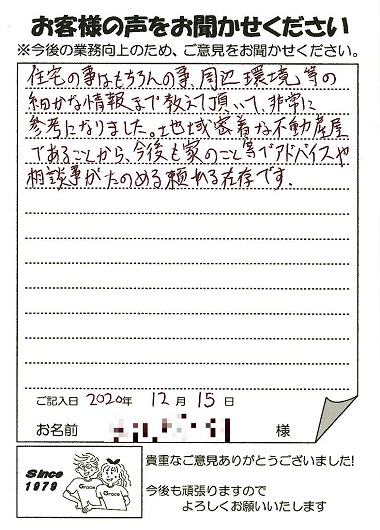 お客様の声をお聞かせください
※今後の業務向上のため、ご意見をお聞かせください。
住宅の事はもちろんの事、周辺環境等の
細かな情報まで教えて頂いて、非常に
参考になりました。地域密着な不動産屋
であることから、今後も家のこと等でアドバイスや
相談事がたのめる頼れる存在です。
ご記入日 2020年 12月 15日
お名前 様
Since
1979
Grace
Grace
貴重なご意見ありがとうございました!
今後も頑張りますので
よろしくお願いいたします